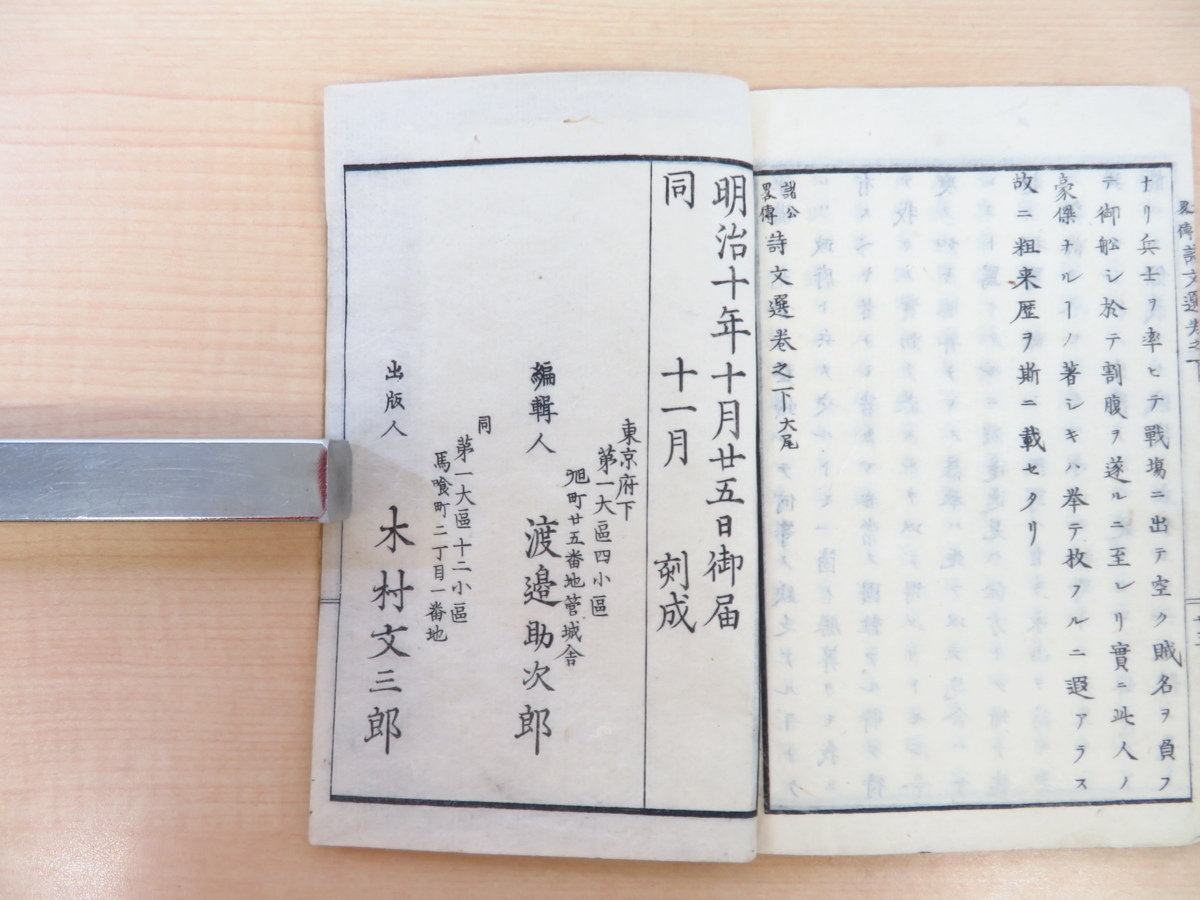 畧傳詩文選卷之下
ナリ兵士ヲ率ヒテ戰塲ニ出テ空ク賊名ヲ負フ
テ御船シ於テ割腹ヲ遂ルニ至レリ實ニ此人ノ
豪傑ナルヿノ著シキハ挙テ枚フルニ遐アラス
故ニ粗来歴ヲ斯ニ載セタリ
諸公
畧傳詩文選卷之下大尾
明治十年十月廿五日御届
同 十一月 刻成
東京府下
第一大區四小區
旭町廿五番地管城舎
編輯人 渡邉助次郎
同
第一大區十二小區
馬喰町二丁目一番地
出版人 木村文三郎